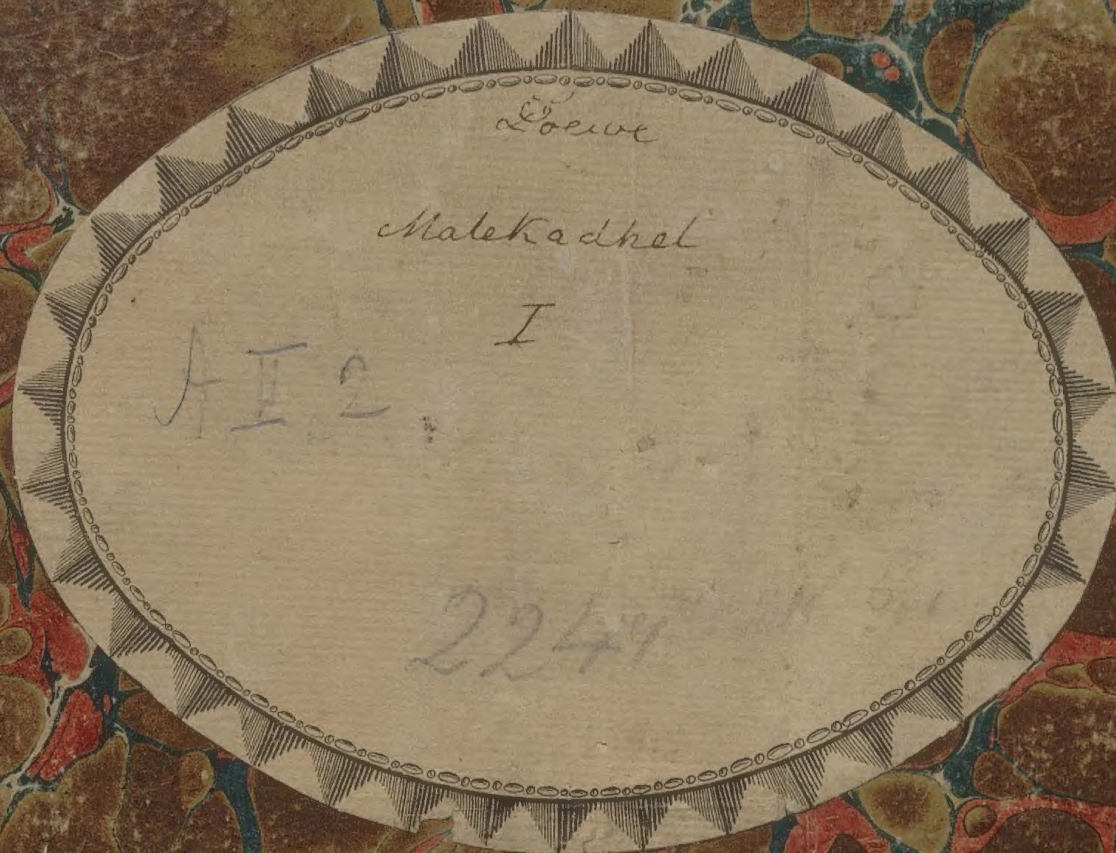 Loewe
Malekadhel
I
A II 2
2244